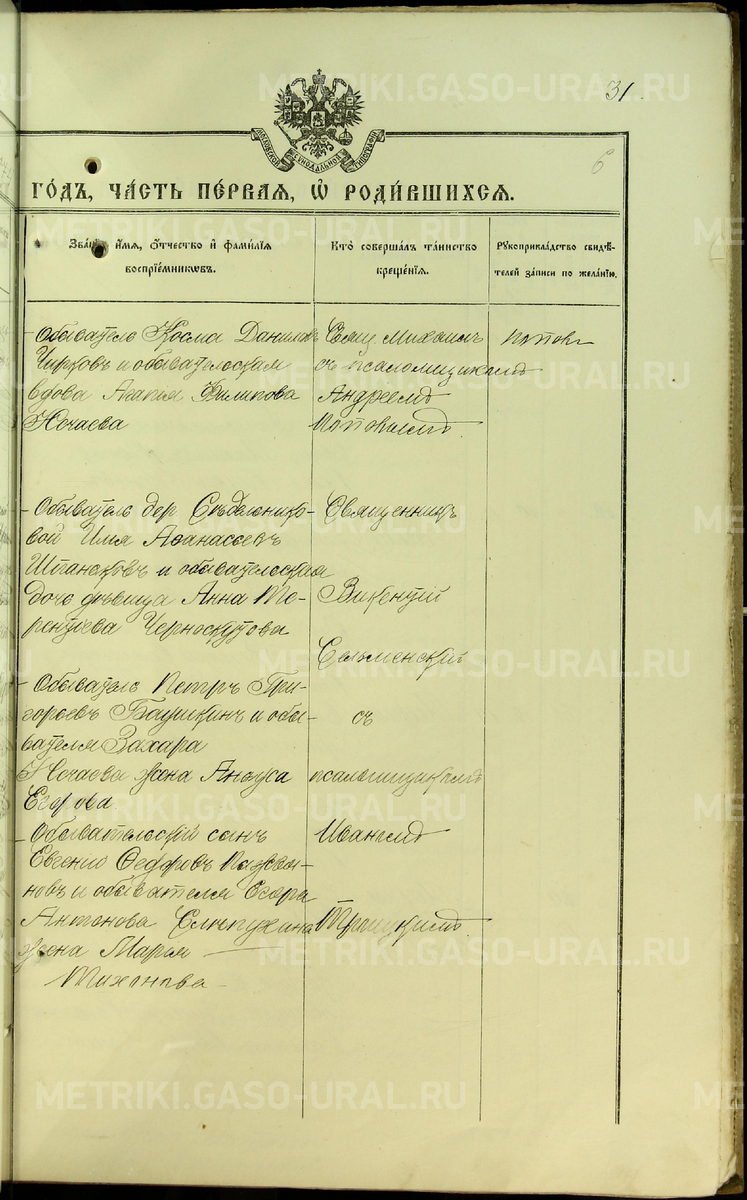 31.
6
МОСКОВСКОЙ СѴНОДАЛЬНОЙ ТИПОГРАФІИ
ГО́ДЪ, ЧА́СТЬ ПЕ́РВАЯ, Ѡ҆ РОДИ́ВШИХСЯ.
Зва́ніе, и҆́мя, ѻ҆́тчество и҆ фами́лія
воспріе́мникѡвъ.
Кто̀ соверша́лъ та́инство
креще́нія.
Рꙋкоприкла́дство свидѣ́-
телей за́писи по жела́нію.
Обыватель Косма Данилов
Чирковъ и обывательская
вдова Агапья Филипова
Нечаева
Свящ Михаилъ Попов
съ псаломщикомъ
Андреемъ
Поповымъ.
- Обыватель дер
вой Илия Афанасьевъ
и обывательская
дочь дѣвица Анна Те-
рентьева Черноскутова
Священникъ
Викентій
Сельменскій
съ
псаломщикомъ
Иваномъ
Троицкимъ.
- Обыватель Петръ Гри-
горьевъ Баушкинъ и обы-
вателя Захара
Нечаева жена Анфуса
Егорова
- Обывательскій сынъ
Евгеній Федоровъ
новъ и обывателя Егора
Антонова Слѣпухина
жена Марья
Тихонова
METRIKI.GASO-URAL.RU